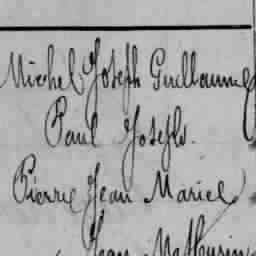 Michel Joseph Guillaume
Paul Joseph.
Pierre Jean Marie
Jean Mathurin